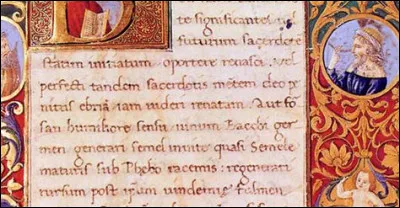 te significantes uel
futurum sacerdotē
statim initiatum oportere renasci. Vel
perfecti tandem sacerdotis mētem deo pe
nitus ebriā iam uideri renatam. Aut for
san humiliore sensu uinum Bacchi ger
men generari semel inuite quasi Semele
maturis sub Phebo racemis: regenerari
rursum post ip̄um uindemie fulmen